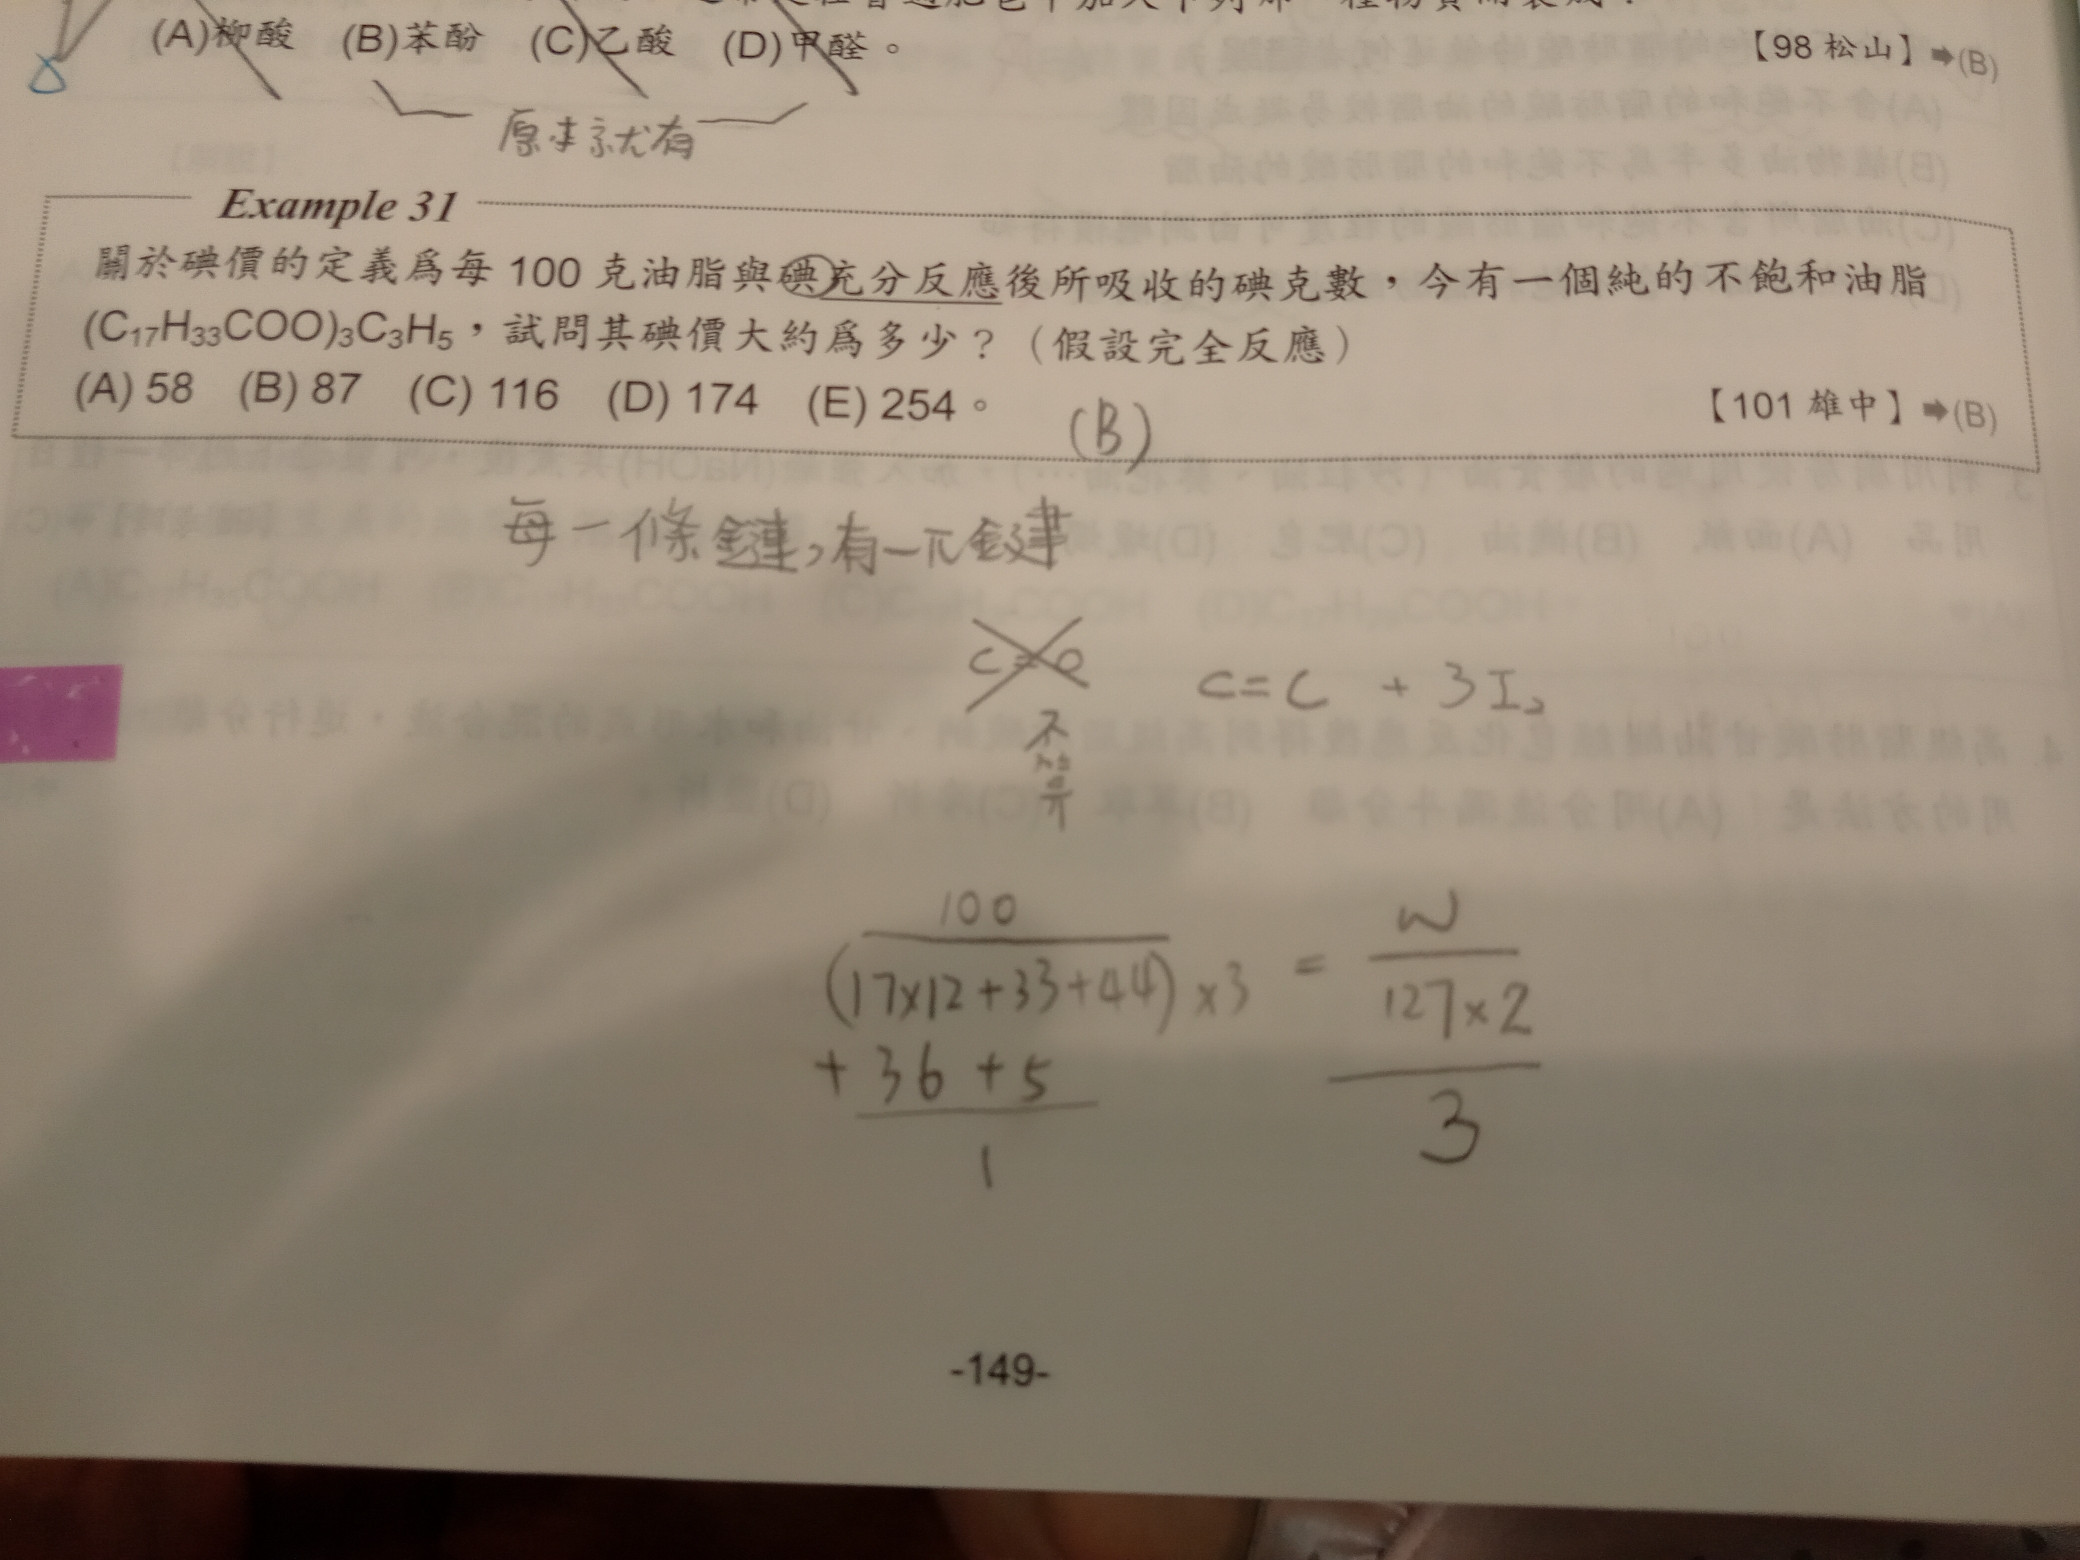 (A)柳酸 (B)苯酚 (C)乙酸 (D)甲醛。 【98 松山】➡(B)
原本就有
Example 31
關於碘價的定義爲每 100 克油脂與碘充分反應後所吸收的碘克數，今有一個純的不飽和油脂
(C₁₇H₃₃COO)₃C₃H₅，試問其碘價大約爲多少？（假設完全反應）
(A) 58 (B) 87 (C) 116 (D) 174 (E) 254。 【101 雄中】➡(B)
(B)
每一條鏈，有一π鍵
C=O
不
算
C=C + 3I₂
100
(17×12+33+44)×3
+36+5
1
=
W
127×2
3
-149-